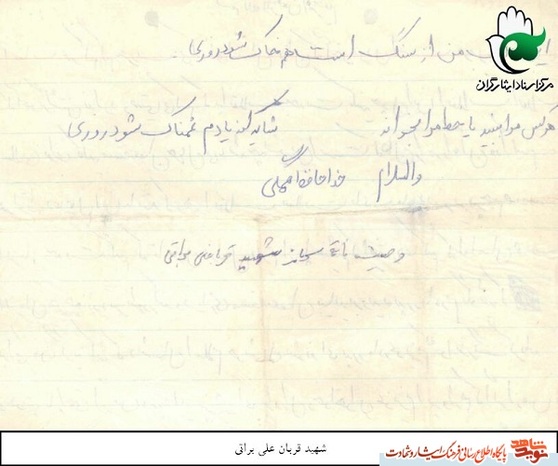 من از سنگ است هم خاک شود روزی
هرکس مرا بیند یا خط مرا خواند شاید که یادم غمناک شود روزی
والسلام خداحافظ همگی
وصیت نامه سرباز شهید قربانعلی براتی
مرکز اسناد ایثارگران
شهید قربان علی براتی
نوید شاهد
پایگاه اطلاع رسانی فرهنگ ایثار و شهادت